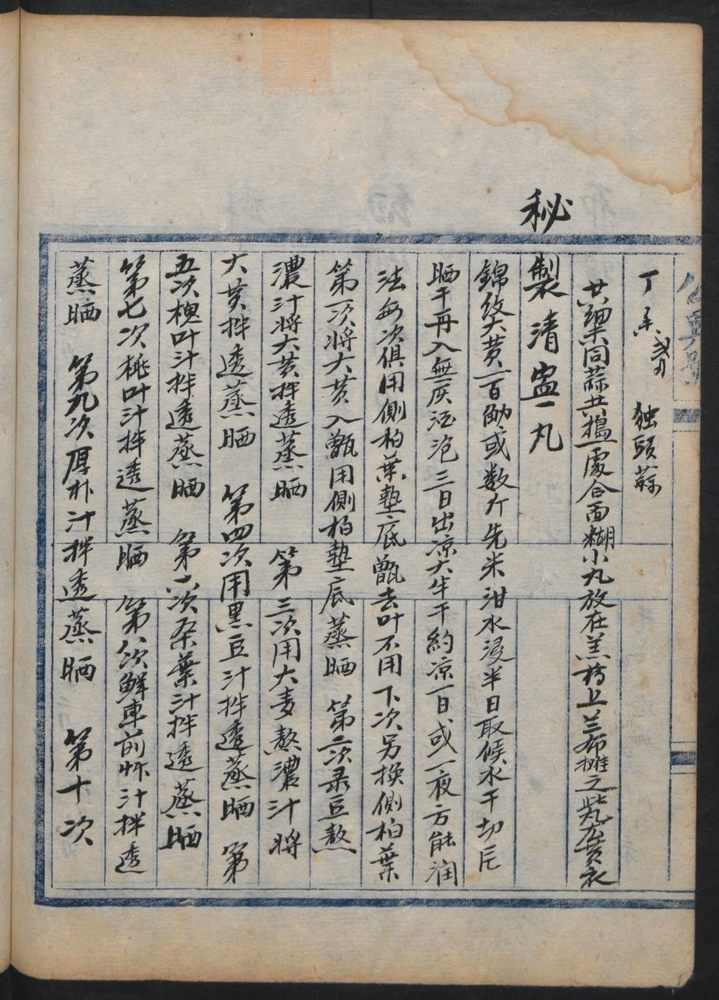 丁香 弍分 独頭蒜
共藥同蒜共搗一處合面糊小丸放在羔膏上兰布攤之此丸黄衣
秘
製清盅丸
錦紋大黄一百觔或数斤先米泔水浸半日取候水干切片
晒干再入無灰酒泡三日出凉大半干約凉一日或一夜方能润
法每次俱用側柏葉墊底甑去叶不用下次另换側柏葉
第一次將大黄入甑用側柏墊底蒸晒 第二次录豆熬
濃汁將大黄拌透蒸晒 第三次用大麦熬濃汁將
大黄拌透蒸晒 第四次用黑豆汁拌透蒸晒 第
五次槐叶汁拌透蒸晒 第六次桑葉汁拌透蒸晒
第七次桃叶汁拌透蒸晒 第八次鮮車前汁拌透
蒸晒 第九次厚朴汁拌透蒸晒 第十次